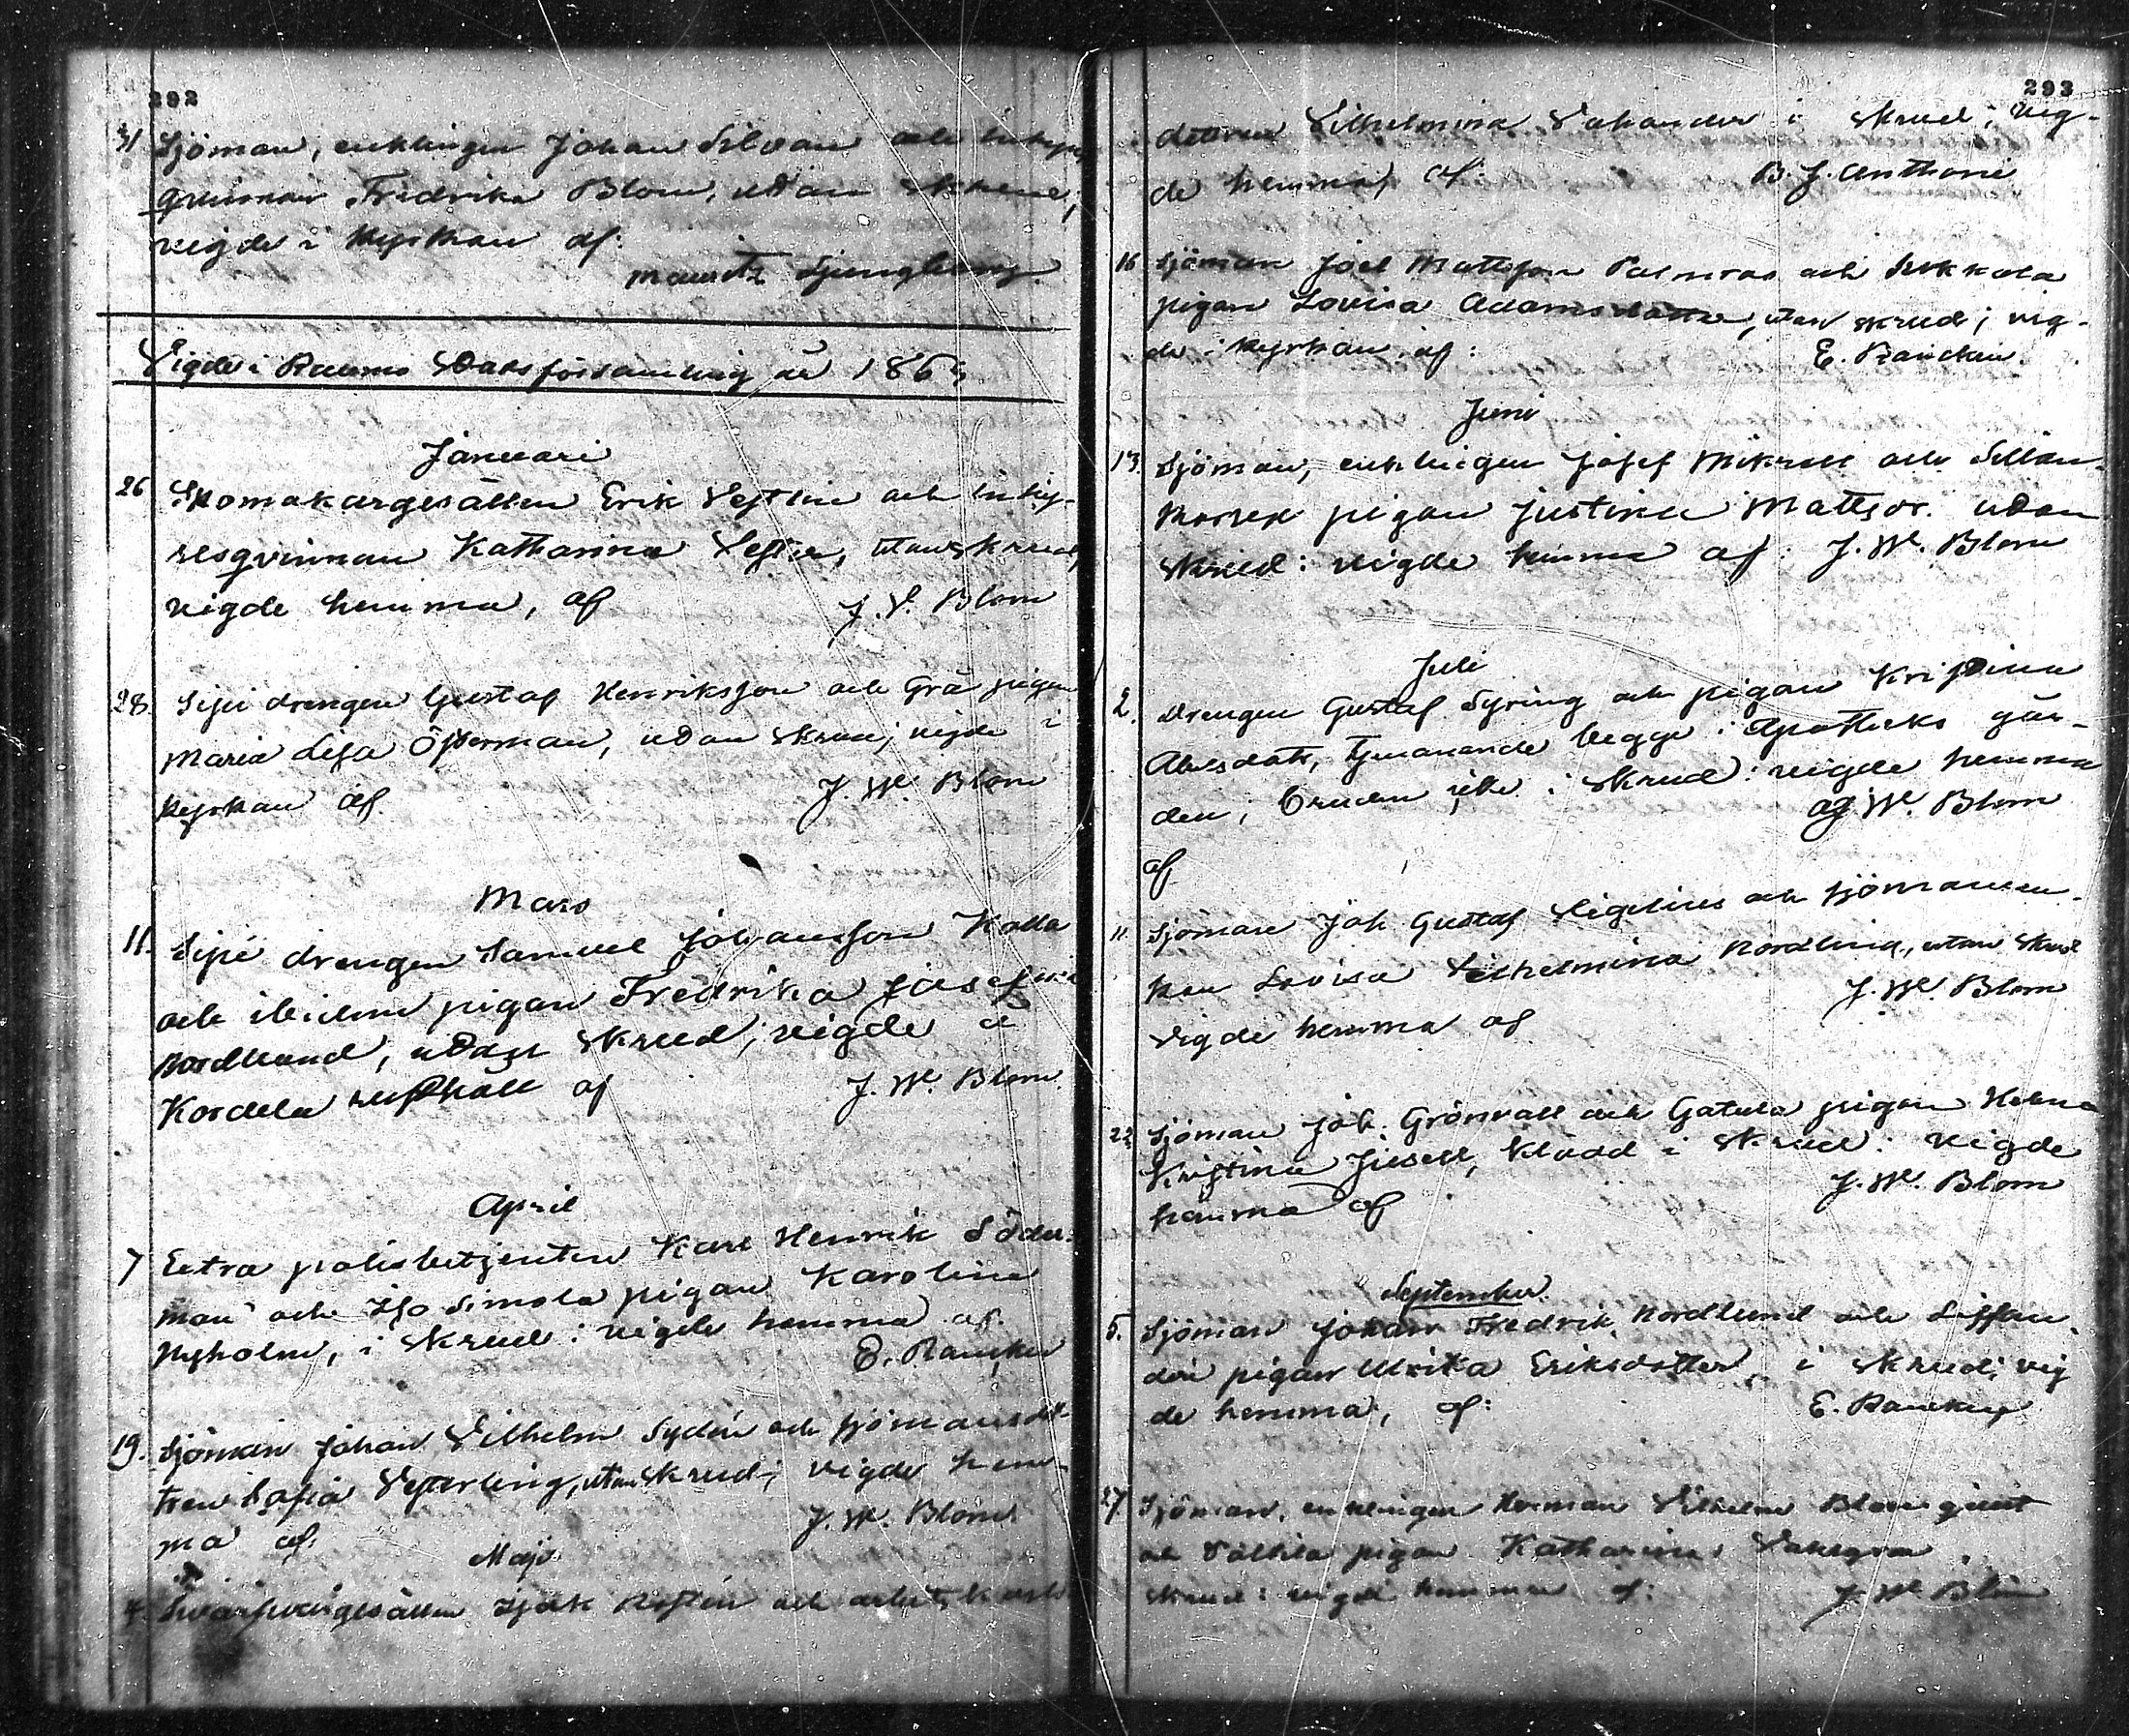 292
31 Sjöman, enklingen Johan Silvan och inhyses
qvinnan Fredrika Blom, utan skrud;
vigde i kyrkan af:
Mauritz Ljungberg.
Vigde i Raumo Stadsförsamling år 1865
Januari
26 Skomakargesällen Erik Vestlin och inhy-
sesqvinnan Katharina utan skrud,
vigde hemma, af J. V. Blom
28. drengen Gustaf Henriksson och pigan
Maria Lisa Österman, utan skrud; vigde i
kyrkan af. J. W. Blom
Mars
11. drengen Samuel Johansson Kolla
och ibidem pigan Fredrika Josefina
Nordlund, utan skrud; vigde å
Kordela rusthåll af J. W. Blom
April
7 Extra polisbetjenten Karl Henrik Söder-
man och Iso Simola pigan Karolina
Nyholm, i skrud: vigde hemma af.
E. Rancken
19. Sjöman Johan Vilhelm Sydén och sjömansdot-
tren Sofia Vesterling, utan skrud; vigde hem-
ma af. J. W. Blom
Maj
4. Svarfvaregesällen Isak Rostén och arbetskarls
293
dottren Vilhelmina i skrud; vig-
de hemma, af: B. J. Anthoni
16 Sjöman Joel Mattsson Palmroos och Sukkala
pigan Lovisa Adamsdotter, utan skrud; vig-
de i kyrkan af: E. Rancken.
Juni
13. Sjöman, enklingen Josef Mikrell och
pigan Justina Mattsdr. utan
skrud: vigde hemma af: J. W. Blom
Juli
2. Drengen Gustaf Syring och pigan Kristina
Abelsdotr, tjenande begge i Apotheks går-
den; bruden icke i skrud: vigde hemma
af W. Blom
af
11 Sjöman Joh. Gustaf Vigelius och sjömansen-
kan Lovisa Vilhelmina Nordling, utan skrud
vigde hemma af J. W. Blom
22 Sjöman Joh. Grönvall och Gatula pigan Helena
Kristina klädd i skrud: vigde
hemma af J. W. Blom
September.
5. Sjöman Johan Fredrik Nordlund och
pigan Ulrika Eriksdotter, i skrud; vig
de hemma, af: E. Rancken
27. Sjöman, enklingen Herman Vilhelm Blomqvist
och pigan Katharina
skrud: vigde hemma af: J. W. Blom